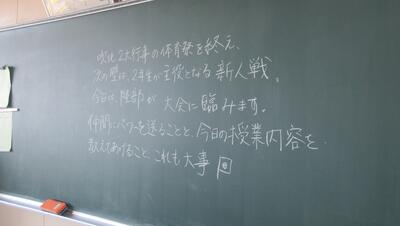 吹北2大行事の体育祭を終え、
次の壁は、2年生が主役となる新人戦。
今日は、陸部が大会に臨みます。
仲間にパワーを送ることと、今日の授業内容を
教えてあげること、これも大事